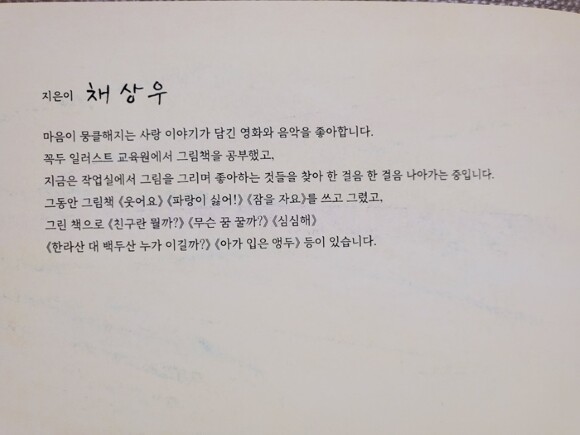 지은이 채상우
마음이 뭉클해지는 사랑 이야기가 담긴 영화와 음악을 좋아합니다.
꼭두 일러스트 교육원에서 그림책을 공부했고,
지금은 작업실에서 그림을 그리며 좋아하는 것들을 찾아 한 걸음 한 걸음 나아가는 중입니다.
그동안 그림책 《웃어요》 《파랑이 싫어!》 《잠을 자요》를 쓰고 그렸고,
그린 책으로 《친구란 뭘까?》 《무슨 꿈 꿀까?》 《심심해》
《한라산 대 백두산 누가 이길까?》 《아가 입은 앵두》 등이 있습니다.